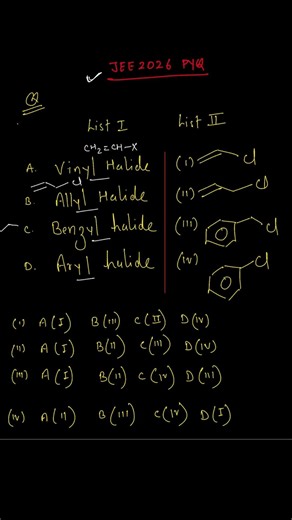 JEE 2026 PYQ
Q
List I List II
CH₂=CH-X
A. Vinyl Halide (I) Cl
Cl
B. Allyl Halide (II) Cl
C. Benzyl halide (III) Cl
D. Aryl halide (IV) Cl
(I) A(I) B(III) C(II) D(IV)
(II) A(I) B(II) C(III) D(IV)
(III) A(I) B(II) C(IV) D(III)
(IV) A(II) B(III) C(IV) D(I)